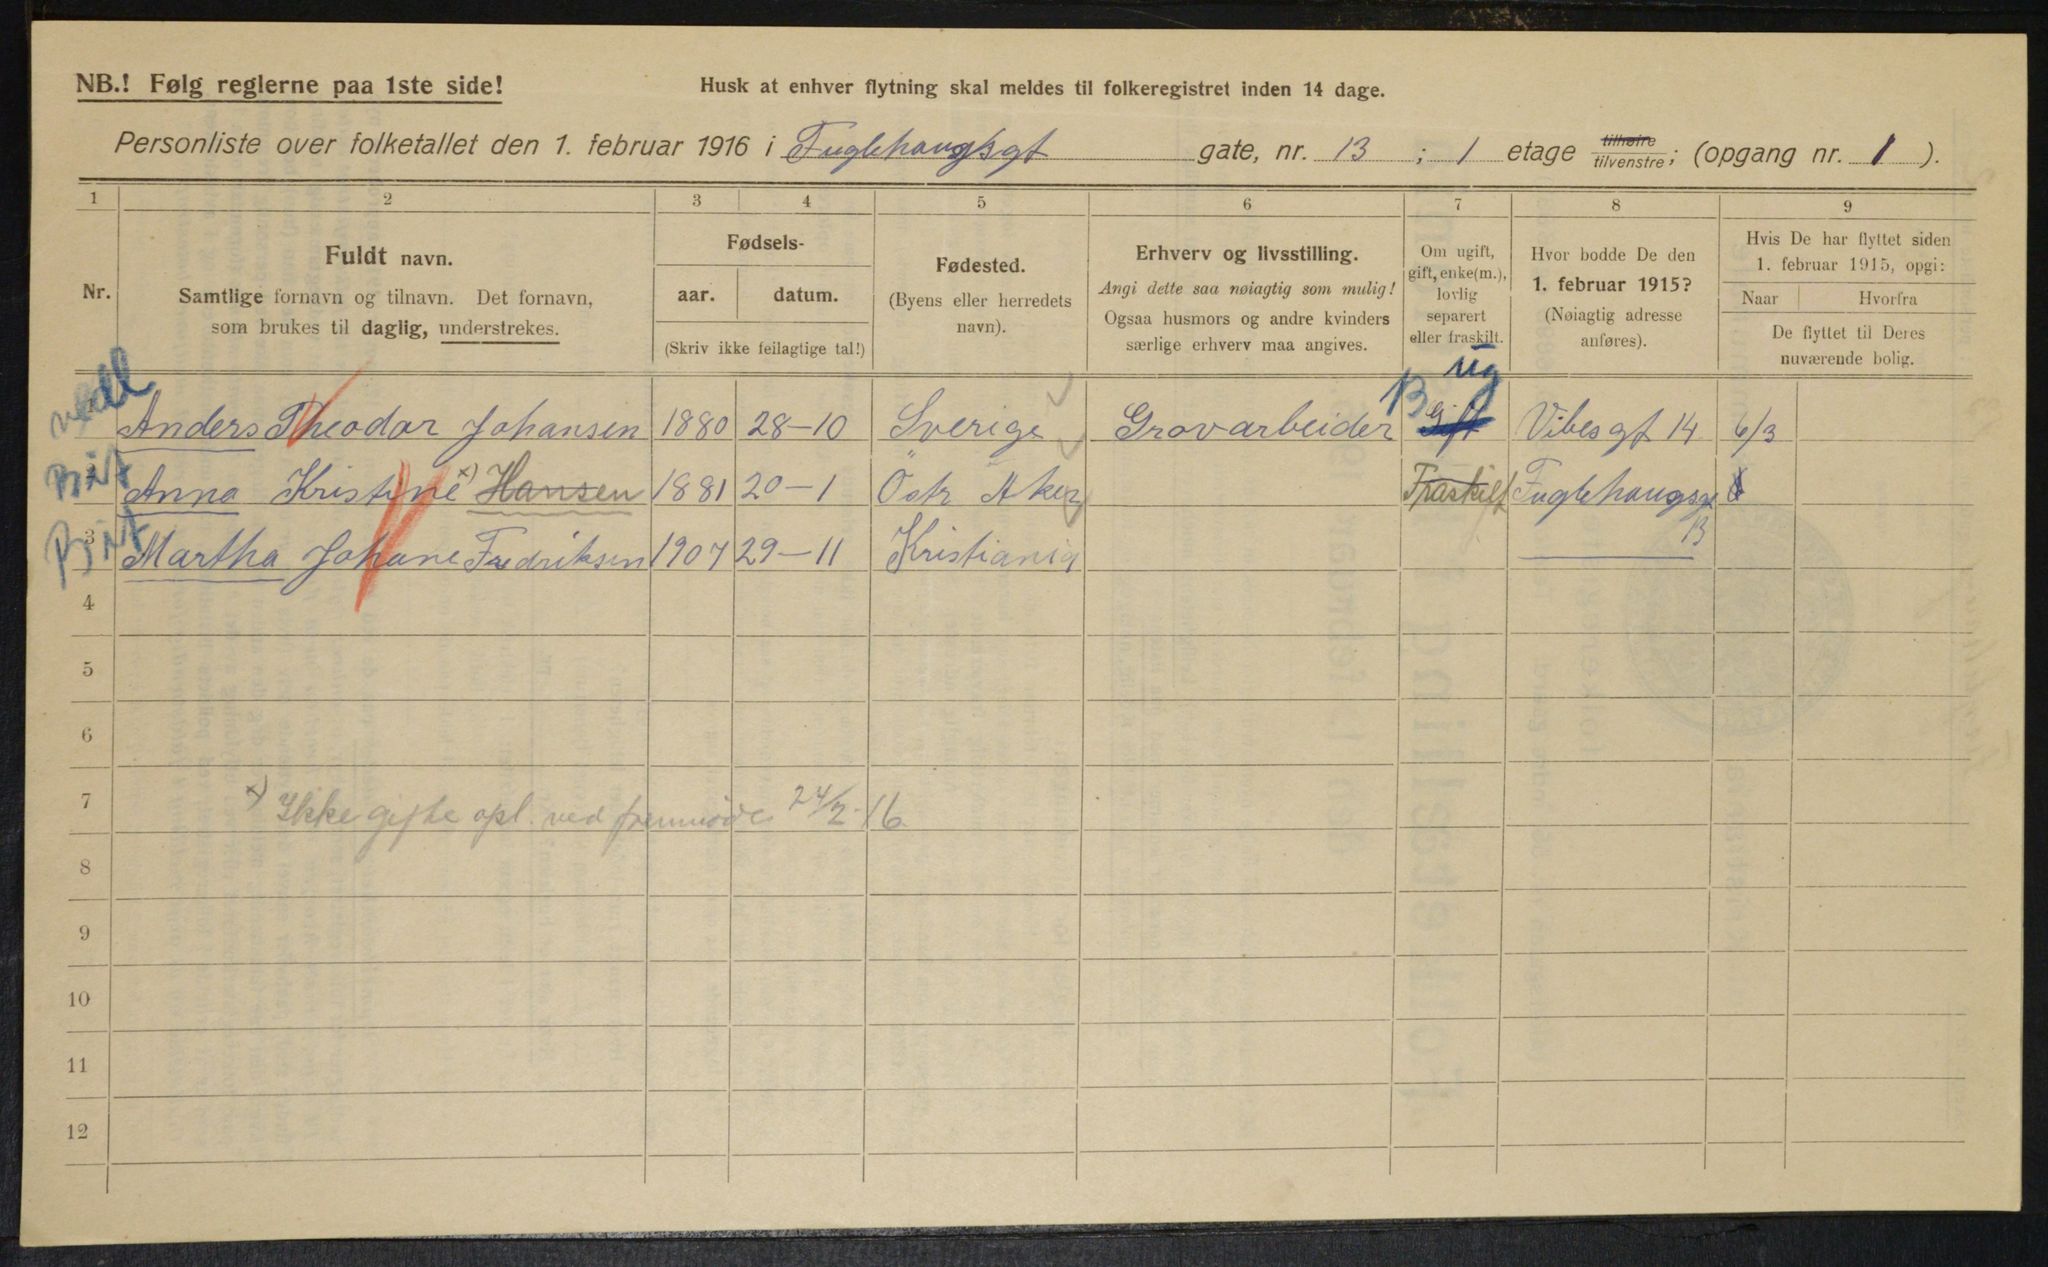 NB.! Følg reglerne paa 1ste side!
Husk at enhver flytning skal meldes til folkeregistret inden 14 dage.
Personliste over folketallet den 1. februar 1916 i Fuglehaugsgt gate, nr. 13 ; 1 etage tilhøire/tilvenstre; (opgang nr. 1 ).
1 2 3 4 5 6 7 8 9
Nr.
Fuldt navn.
Samtlige fornavn og tilnavn. Det fornavn,
som brukes til daglig, understrekes.
Fødsels-
aar. datum.
(Skriv ikke feilagtige tal!)
Fødested.
(Byens eller herredets
navn).
Erhverv og livsstilling.
Angi dette saa nøiagtig som mulig!
Ogsaa husmors og andre kvinders
særlige erhverv maa angives.
Om ugift,
gift, enke(m.),
lovlig
separert
eller fraskilt.
Hvor bodde De den
1. februar 1915?
(Nøiagtig adresse
anføres).
Hvis De har flyttet siden
1. februar 1915, opgi:
Naar Hvorfra
De flyttet til Deres
nuværende bolig.
ug
1 Anders Theodor Johansen 1880 28-10 Sverige Grovarbeider B Gift Vibesgt 14 6/3
2 Anna Kristine x) Hansen 1881 20-1 Östr Aker Fraskilt Fuglehaugsgt
13
3 Martha Johane Fredriksen 1907 29-11 Kristiania
4
5
6
7
x) Ikke gifte opl. ved fremmøde 24/2-16
8
9
10
11
12